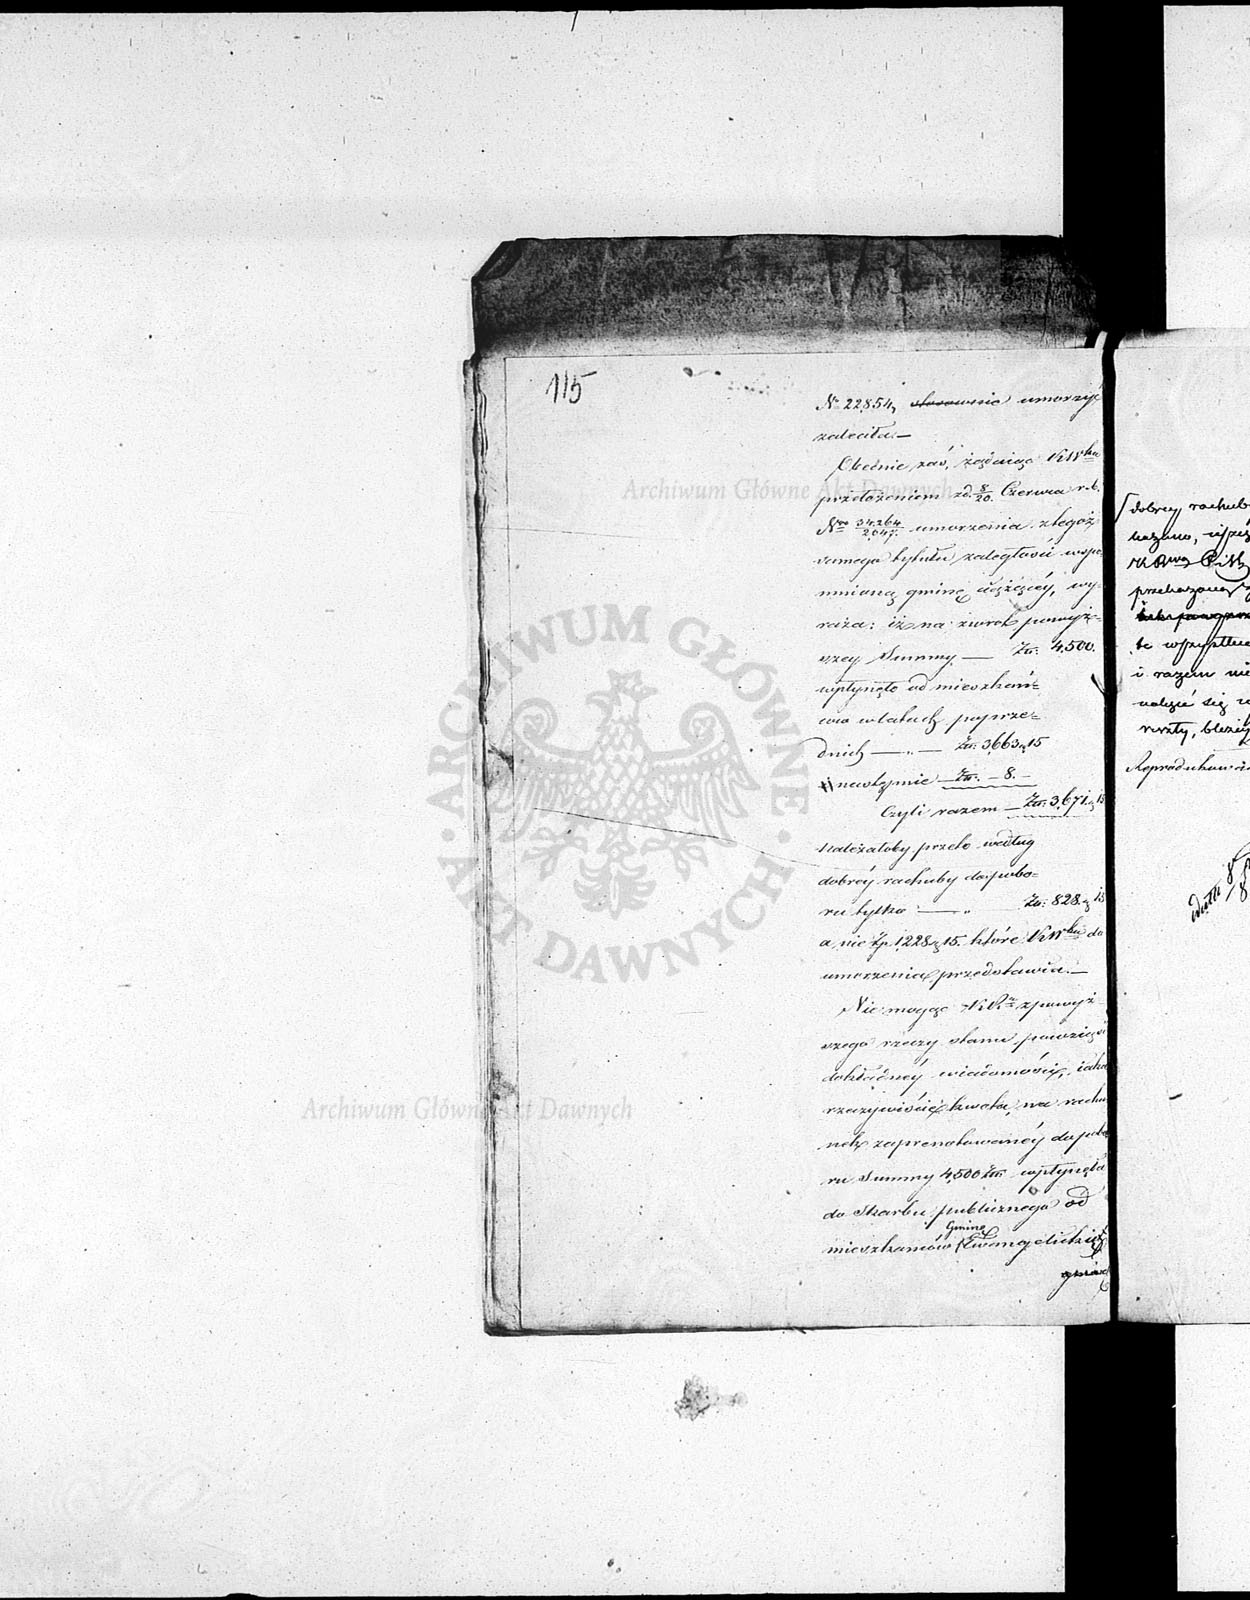 115
No 22,854, stosownie umorzyć
zaleciła.—
Obecnie zaś, żądając KWka
przełożeniem zd. 8/20. Czerwca r.b.
Nro 34.264/2,047. umorzenia z tegoż
samego tytułu zaległość wspo-
mnioną gminę ciążącéy, wy-
raża: iż na zwrot powyż-
szey Summy — Złt: 4,500.
wpłynęło od mieszkań-
ców w latach poprze-
dnich — „ — Złt: 3,663 g 15
następnie Złt. — 8. —
Czyli razem — Złt: 3,671. g 15
Należałoby przeto według
dobréy rachuby do pobo-
ru tylko — „ Złt: 828. g 15
a nie Złp. 1,228 g 15. które KWka do
umorzenia przedstawia.—
Nie mogąc z powyż-
szego rzeczy stanu powziąść
dokładnéy wiadomości, iaka
rzeczywiście kwota, na rachu-
nek zaprenotowanéy do pobo-
ru Summy 4,500 Złt. wpłynęła
do Skarbu publicznego od
mieszkańców Gminy Ewangelickiéy
dobrey rachub
kazano,
przekazaną
te wszystkie
i razem nie
należeć się
reszty, bliżéy
Archiwum Główne Akt Dawnych
Archiwum Główne Akt Dawnych
ARCHIWUM GŁÓWNE AKT DAWNYCH